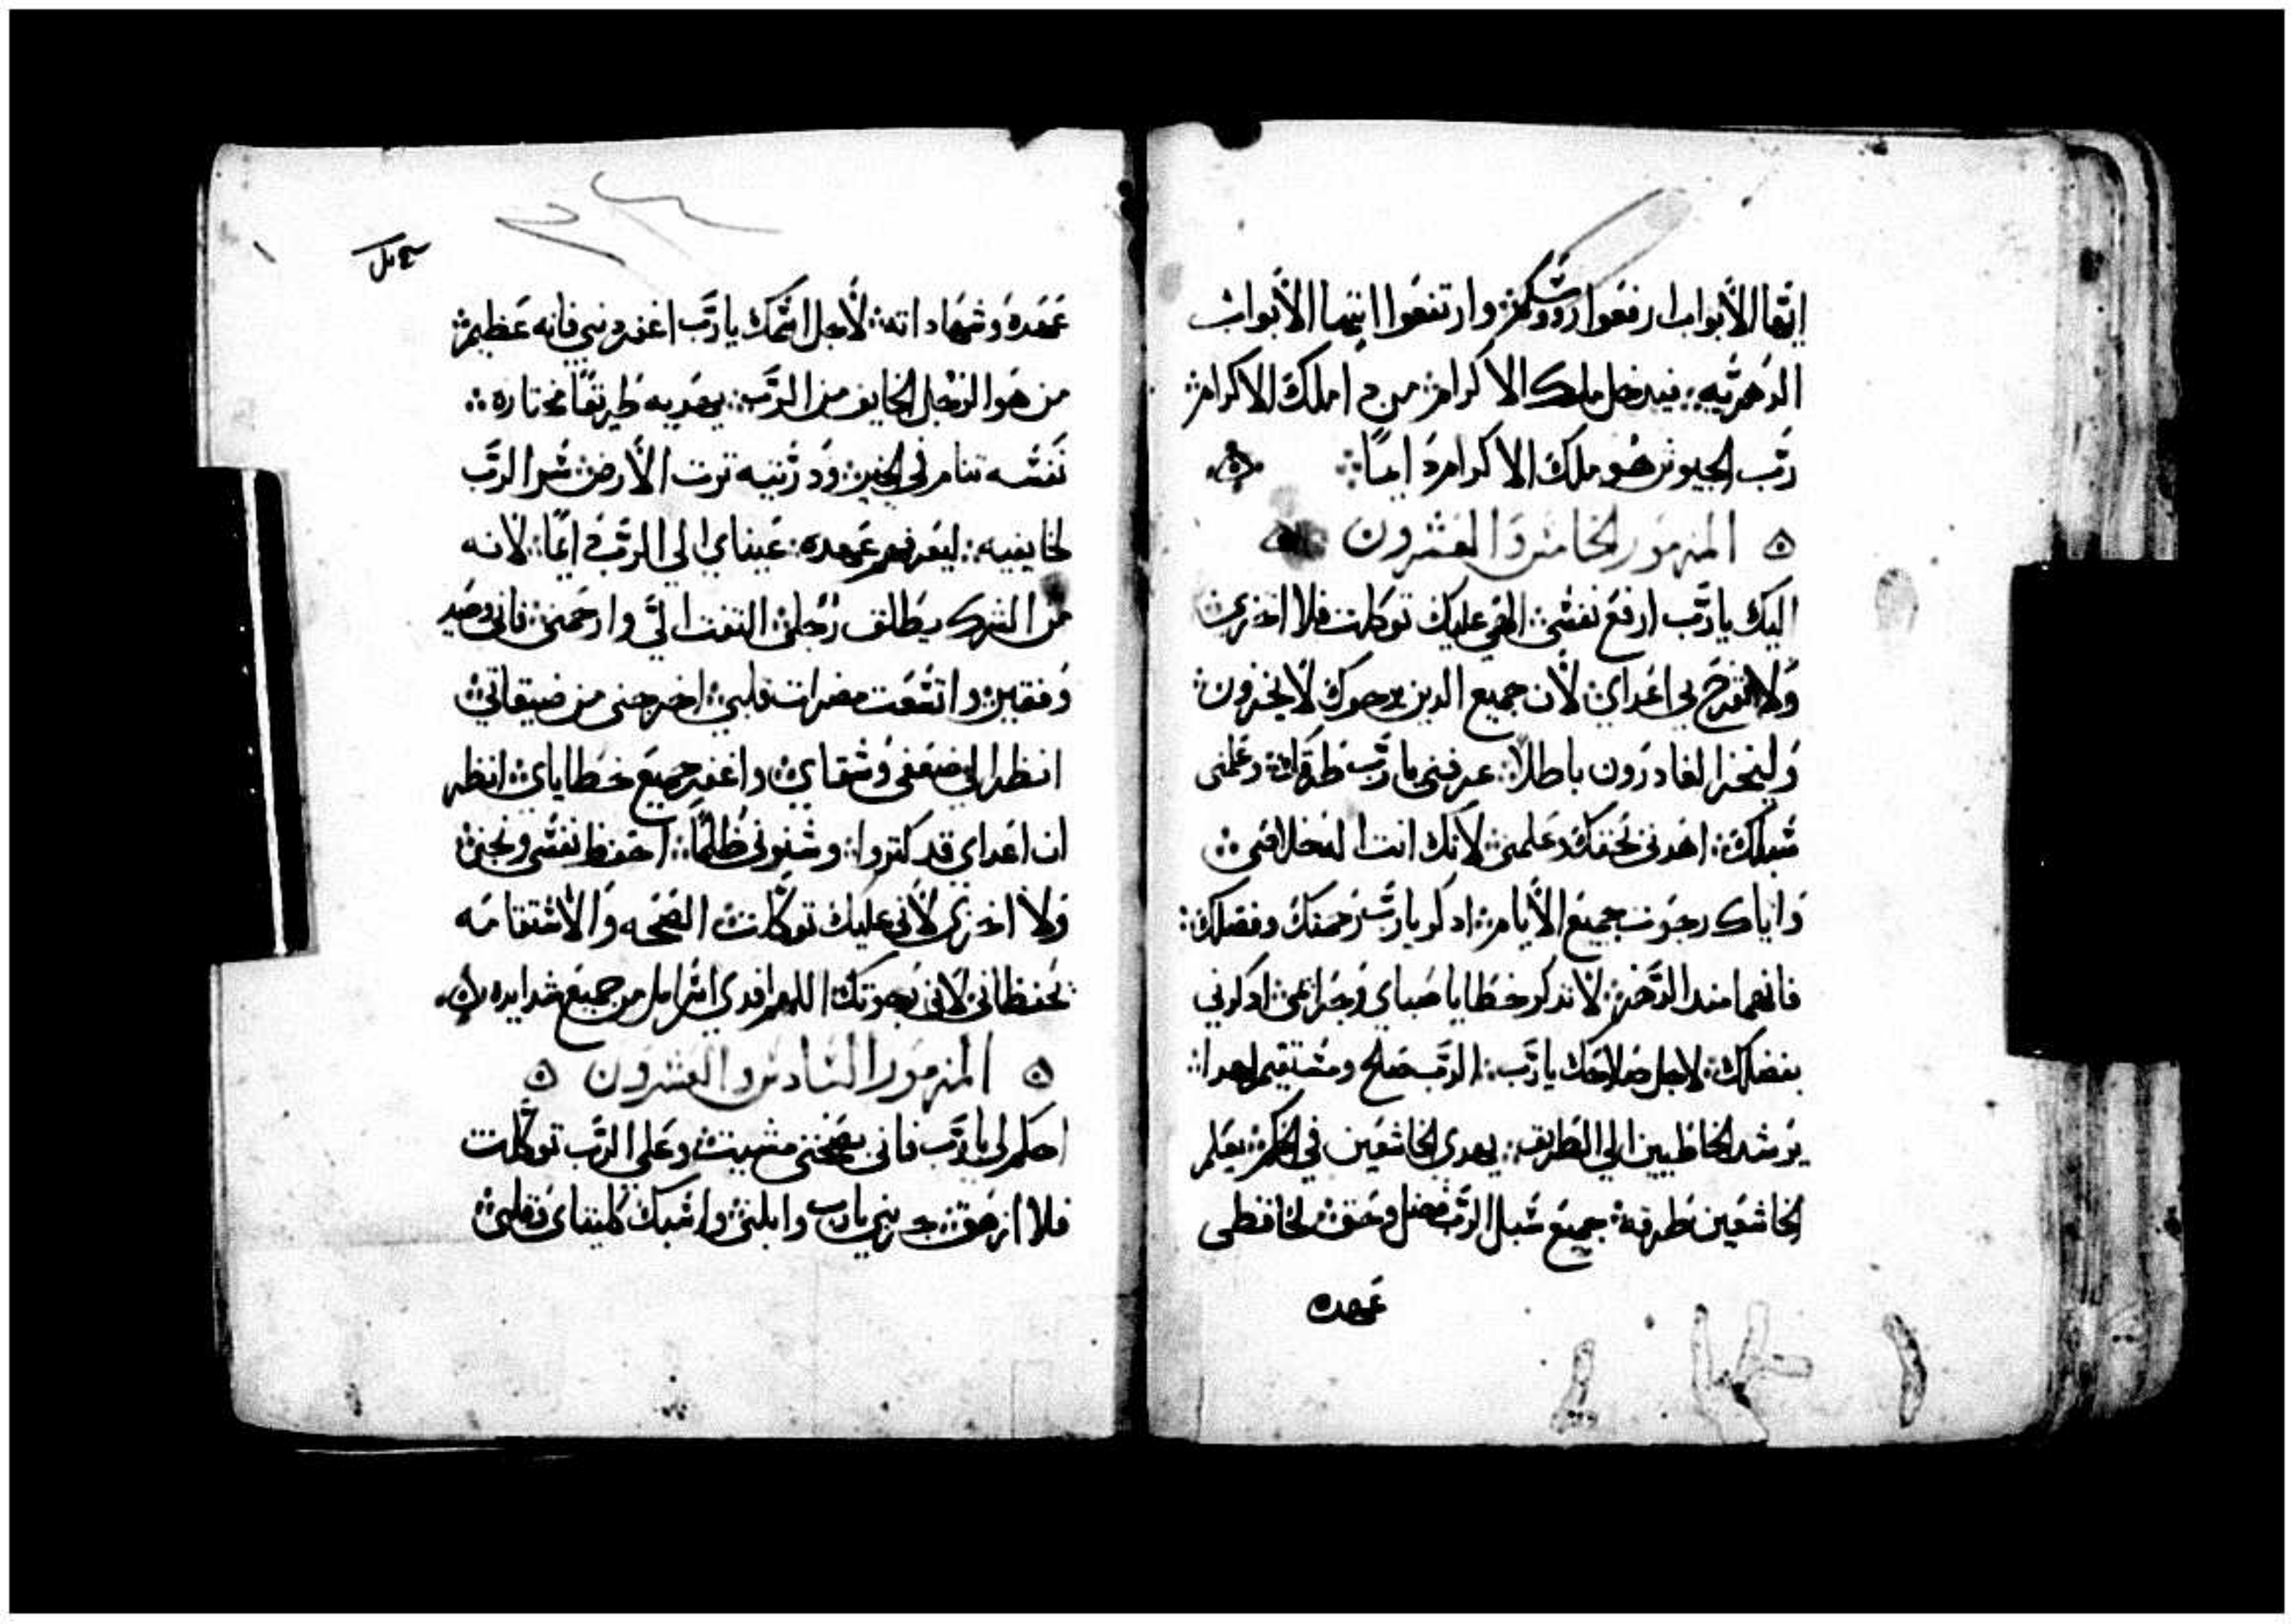 ايها الأبواب ارفعوا رووسكم وارتفعوا ايتها الأبواب
الدهريه فيدخل ملك الاكرام من دا ملك الاكرام
رب الجيوش هو ملك الاكرام دايما
المزمور الخامس والعشرون
اليك يا رب ارفع نفسي الهي عليك توكلت فلا اخزي
ولا تفرح بي اعداي لأن جميع الدين يرجوك لا يخزون
وليخزا الغادرون باطلا عرفني يا رب طرقك وعلمني
سبلك اهدني بحقك وعلمني لأنك انت اله خلاصي
واياك رجوت جميع الأيام ادكر يا رب رحمتك وفضلك
فانهما مند الدهر لا تدكر خطايا صباي وجرايمي ادكرني
بفضلك لاجل صلاحك يا رب الرب صلح ومستقيم لهدا
يرشد الخاطيين الي الطريق يهدي الخاشعين في الحكم يعلم
الخاشعين طرقه جميع سبل الرب فضل وحق لحافظي
عهده
عهده وشهاداته لأجل اسمك يا رب اغفر دنبي فانه عظيم
من هو الرجل الخايف من الرب يهديه طريقا مختاره
نفسه تنام في الخير ودريته ترت الأرض سر الرب
لخايفيه ليعرفهم عهده عيناي الي الرب دايما لأنه
من الشرك يطلق رجلي التفت الي وارحمني فاني وحيد
وفقير واتسعت مضرات قلبي اخرجني من ضيقاتي
انظر الي ضعفي وشقاي واغفر جميع خطاياي انظر
ان اعداي قد كتروا وشنوني ظلما احفظ نفسي ونجني
ولا اخزي لأني عليك توكلت الصحه والاستقامه
تحفظاني لاني رجوتك اللهم افدي اسرايل من جميع شدايده
المزمور السادس والعشرون
احكم لي يا رب فاني بصحتي مشيت وعلي الرب توكلت
فلا ازهق جربني يا رب وابلني واسبك كليتاي وقلبي